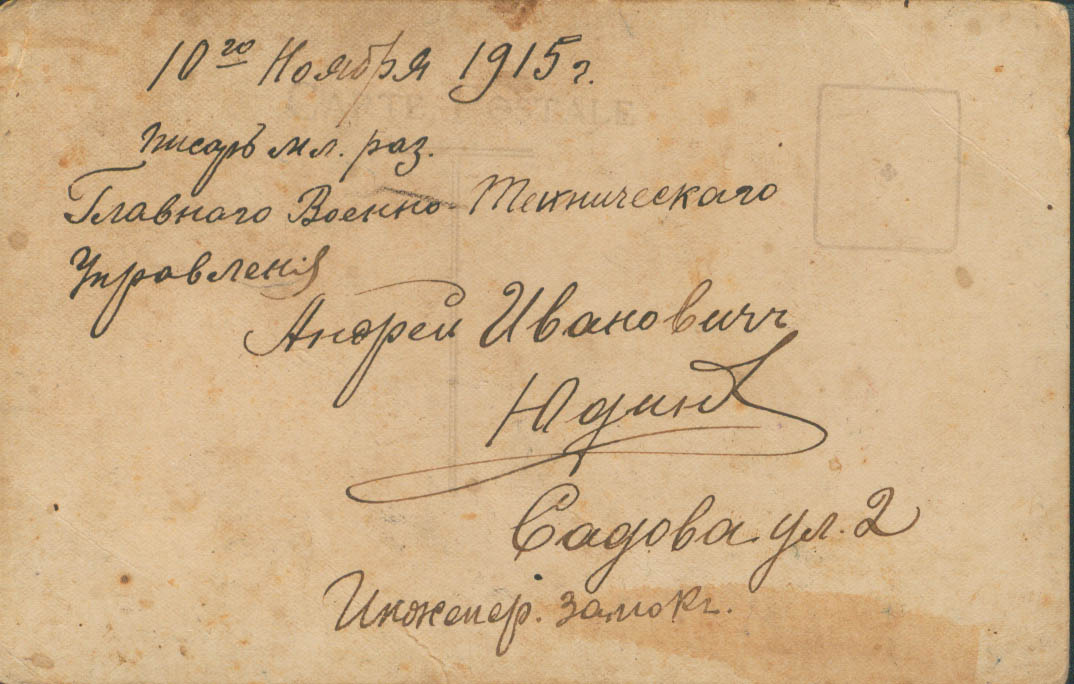 10го Ноября 1915 г.
CARTE POSTALE
писарь мл. раз.
Главного Военно-Техническаго
Управления
Андрей Ивановичъ
Юдинъ
Садова. ул. 2
Инженер. замокъ.